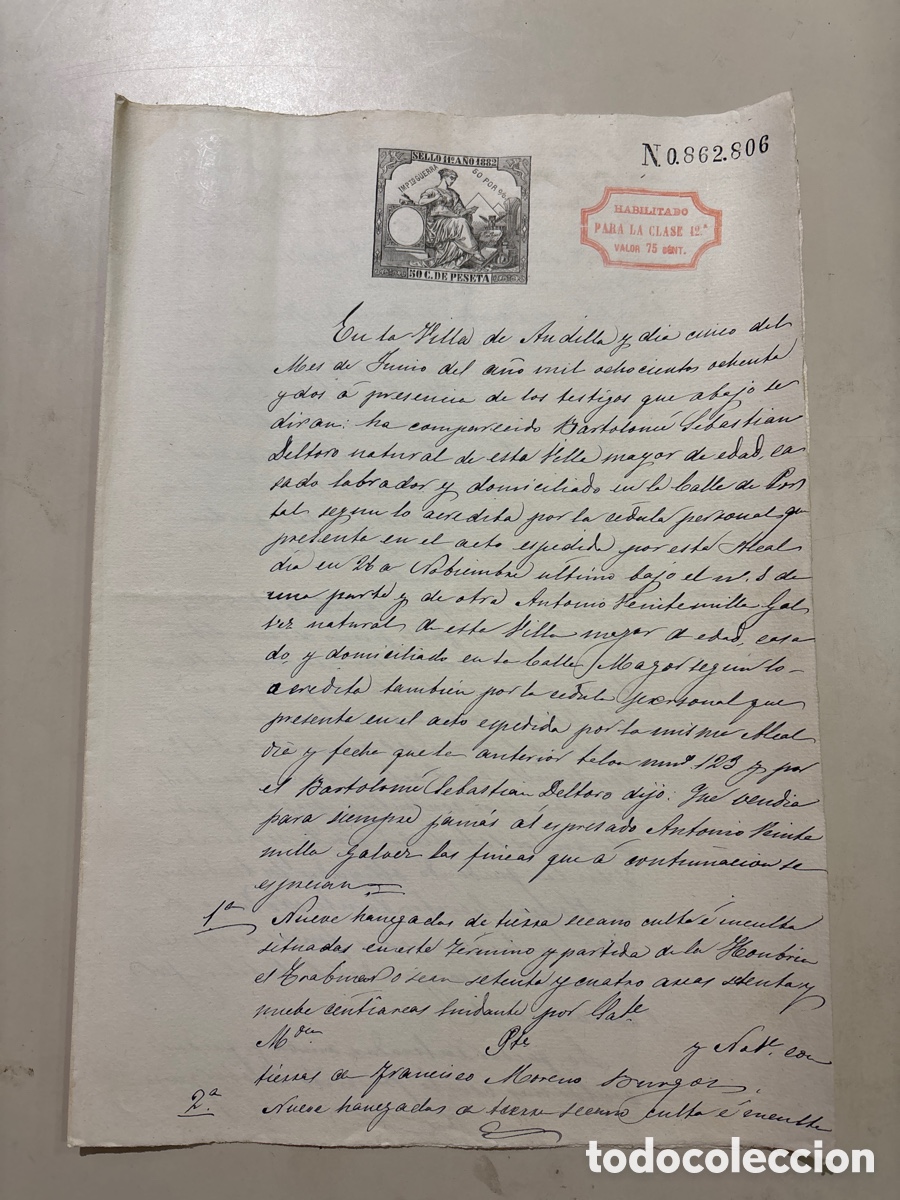 SELLO 11º AÑO 1882
IMPTO GUERRA 50 POR %
50 C. DE PESETA
N. 0.862.806
HABILITADO
PARA LA CLASE 12.ª
VALOR 75 CENT.
En la Villa de Andilla y dia cinco del
Mes de Junio del año mil ochocientos ochenta
y dos á presencia de los testigos que abajo se
diran: ha comparecido Bartolomé Sebastian
Deltoro natural de esta Villa mayor de edad, ca
sado labrador y domiciliado en la Calle de Por
tal segun lo acredita por la cedula personal que
presenta en el acto espedida por esta Alcal
dia en 26 a Nobiembre ultimo bajo el n. 8 de
una parte y de otra Antonio Veintemilla Gal
vez natural de esta Villa mayor de edad, casa
do, y domiciliado en la Calle Mayor segun lo
acredita tambien por la cedula personal que
presenta en el acto espedida por la misma Alcal
dia y fecha que la anterior num.º 123 y por
el Bartolomé Sebastian Deltoro dijo: Que vendia
para siempre jamás al espresado Antonio Veinte
milla Galvez las fincas que á continuacion se
espresan
1ª Nueve hanegadas de tierra secano culta é inculta
situadas en este Término y partida de la Honbria
el ó sean setenta y cuatro areas setenta y
nuebe centiareas lindante por
M. Pte y Nat.e con
tierras de Francisco Moreno Burgos.
2.ª Nueve hanegadas de tierra secano culta é inculta
todocoleccion.com